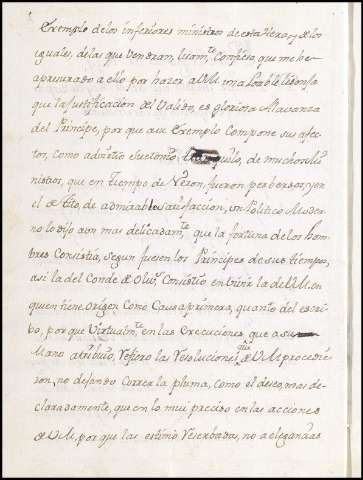 Exemplo de los inferiores ministros de esta Hera, y de los
iguales, de las que Vendran, lisam.te Confieso que me he
apresurado a ello por hazer a VM Una loable lisonja
que la Justificacion del Valido, es gloriosa Alavanza
del Principe, por que a su Exemplo Compone sus afec
tos, como advirtio Suetonio, de muchos Mi
nistros, que en tiempo de Neron, fueron perbersos, y en
el de Tito, de admirable satisfaccion, un Politico Moder
no lo dijo aun mas delicadam.te que la fortuna de los hom
bres Consistia, segun fuesen los Principes de sus tiempos,
asi la del Conde de Oliv.s Consistio en Vivir la de VM. en
quien tiene origen Como Causa primera, quanto del escri
bo, por que Virtualm.te en las execuciones, que a su
Mano atribuio, refiero las Resoluciones, que de VM procedie
ron, no dejando Correr la pluma, como el deseo, mas de
claradamente, que en lo mui preciso en las acciones
de VM, por que las estimo reserbadas, no a elegancias